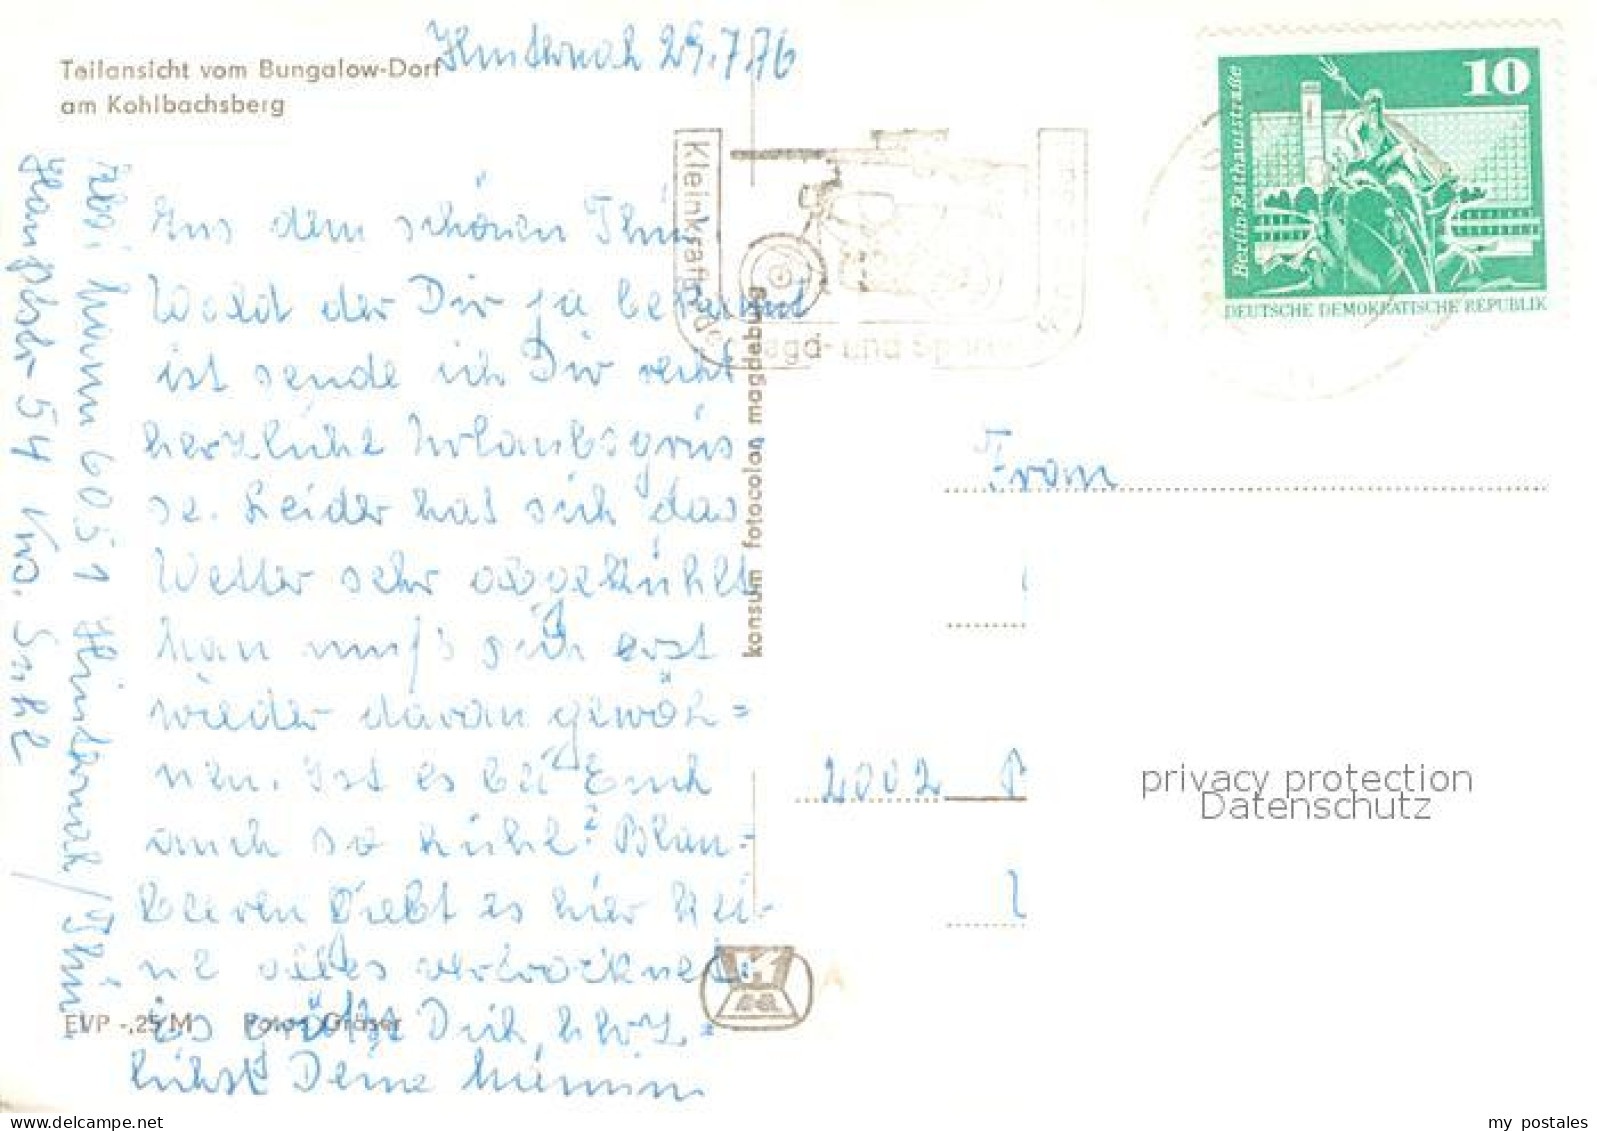 Teilansicht vom Bungalow-Dorf
am Kohlbachsberg
Hinternah 29.7.76
Aus dem schönen Thür.
Wald der Dir ja bekannt
ist sende ich Dir recht
herzliche Urlaubsgrüs
se. Leider hat sich das
Wetter sehr abgekühlt
Man muß sich erst
wieder daran gewöh=
nen. Ist es bei Euch
auch so kühl? Blau-
beeren giebt es hier kei-
ne alles vertrocknet
Es grüßt Dich herz=
lichst Deine
6051 Hinternah / Thür
Hauptstr 54 Kr. Suhl
EVP -,25 M Foto: Gräser
konsum fotocolor magdeburg
Kleinkrafträder Jagd- und
10
Berlin-Rathausstraße
DEUTSCHE DEMOKRATISCHE REPUBLIK
Frau
2002 P
privacy protection
Datenschutz
EVP-ON-THE-GO
my postales